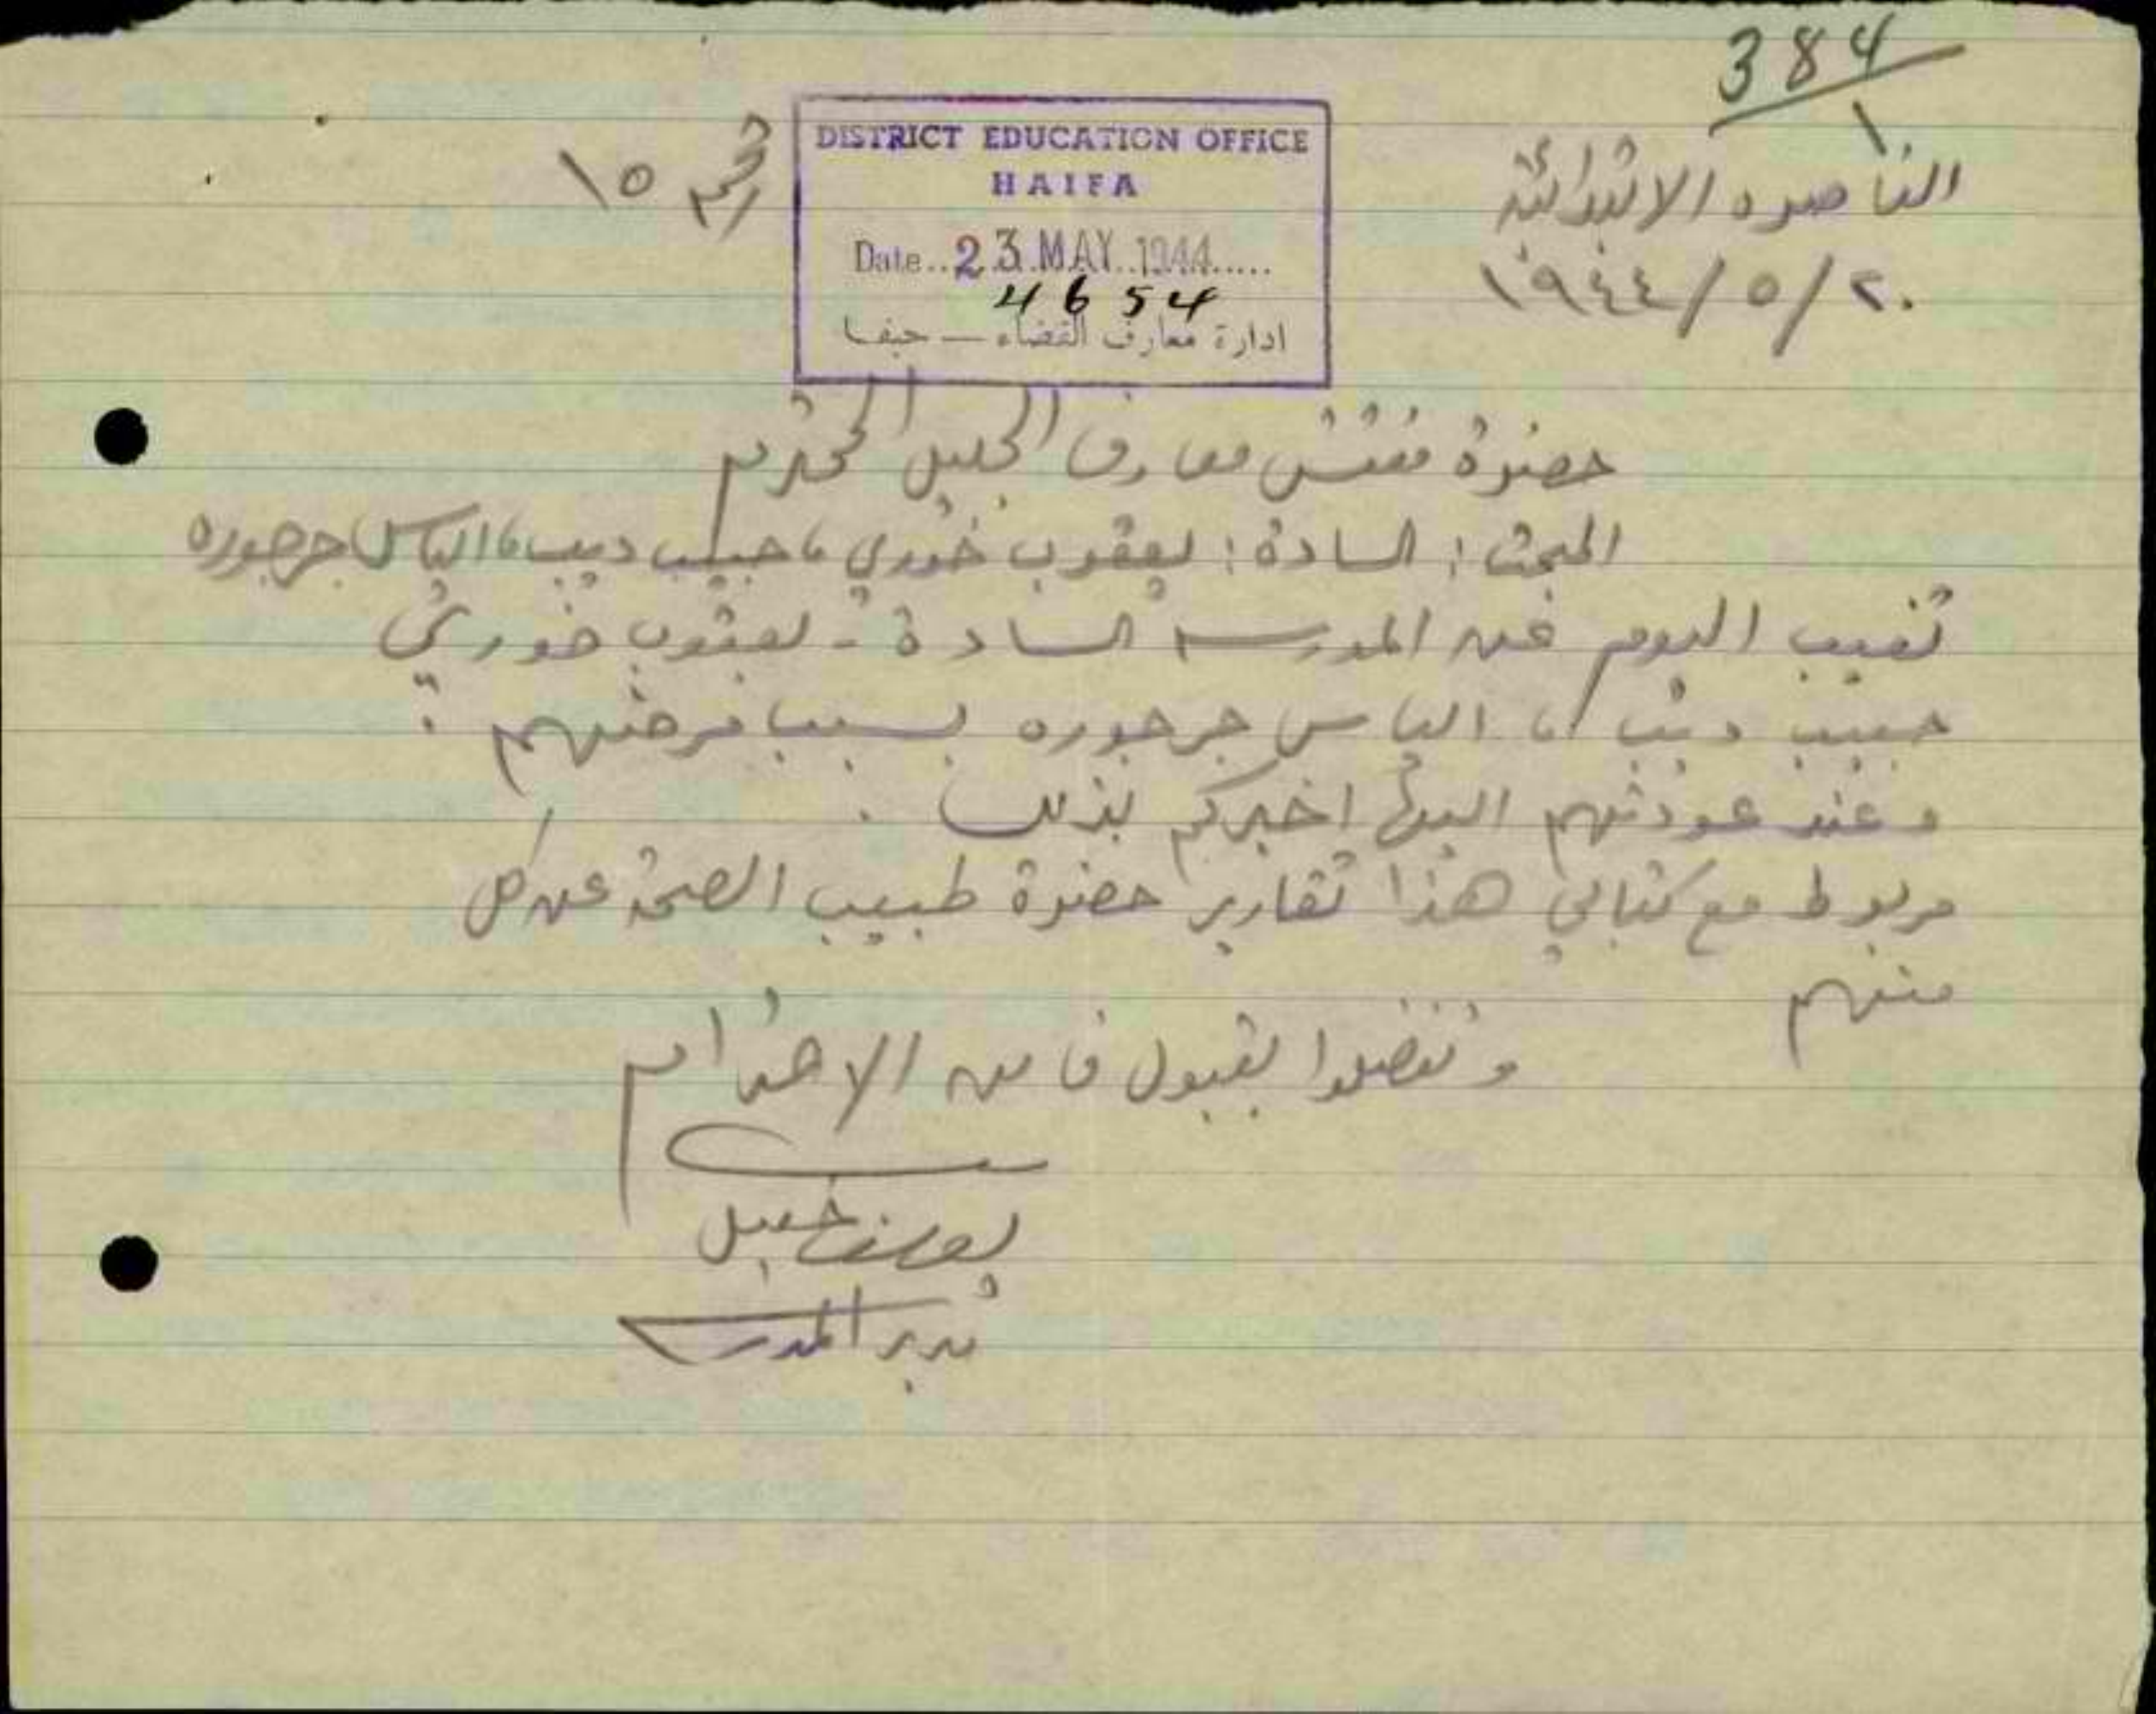 384
١
الناصره الابتدائية
٢٠/٥/١٩٤٤
رقم ١٥
DISTRICT EDUCATION OFFICE
HAIFA
Date..23 MAY 1944......
4654
ادارة معارف القضاء — حيفا
حضرة مفتش معارف الجليل المحترم
المبحث: السادة: يعقوب خوري، حبيب ديب، الياس جرجوره
تغيب اليوم عن المدرسة السادة - يعقوب خوري
حبيب ديب، الياس جرجوره بسبب مرضهم :
وعند عودتهم اليها اخبركم بذلك .
مربوط مع كتابي هذا تقارير حضرة طبيب الصحة عن كل
منهم
وتفضلوا بقبول فائق الاحترام
مدير المدرسة